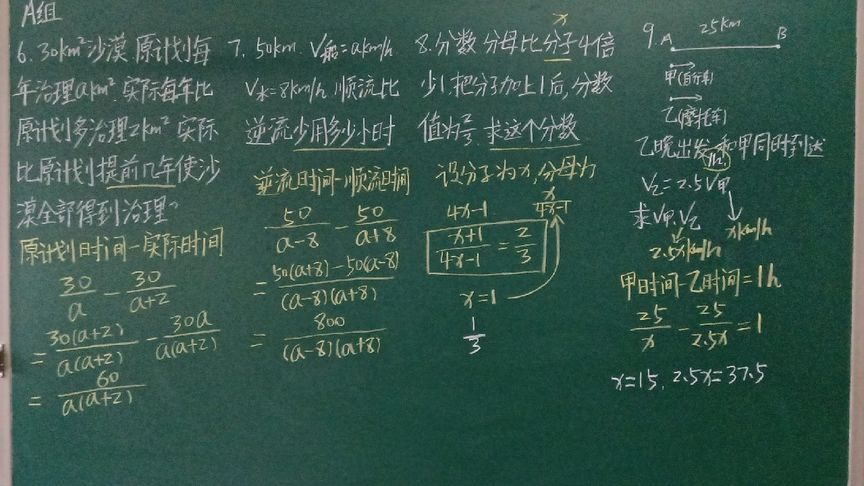 A组
6. 30km² 沙漠 原计划每
年治理akm². 实际每年比
原计划多治理2km² 实际
比原计划提前几年使沙
漠全部得到治理?
原计划时间-实际时间
30/a - 30/(a+2)
= 30(a+2)/a(a+2) - 30a/a(a+2)
= 60/a(a+2)
7. 50km. V船=akm/h
V水=8km/h 顺流比
逆流少用多少小时
逆流时间-顺流时间
50/(a-8) - 50/(a+8)
= 50(a+8)-50(a-8)/(a-8)(a+8)
= 800/(a-8)(a+8)
x
8. 分数 分母比分子4倍
少1. 把分子加上1后, 分数
值为2/3. 求这个分数
设分子为x, 分母为
4x-1
x/4x-1
(x+1)/(4x-1) = 2/3
x=1
1/3
9. A 25km B
甲(自行车)
乙(摩托车)
乙晚出发 和甲同时到达
1h
V乙=2.5V甲
求V甲.V乙
xkm/h
2.5xkm/h
甲时间-乙时间=1h
25/x - 25/2.5x = 1
x=15. 2.5x=37.5